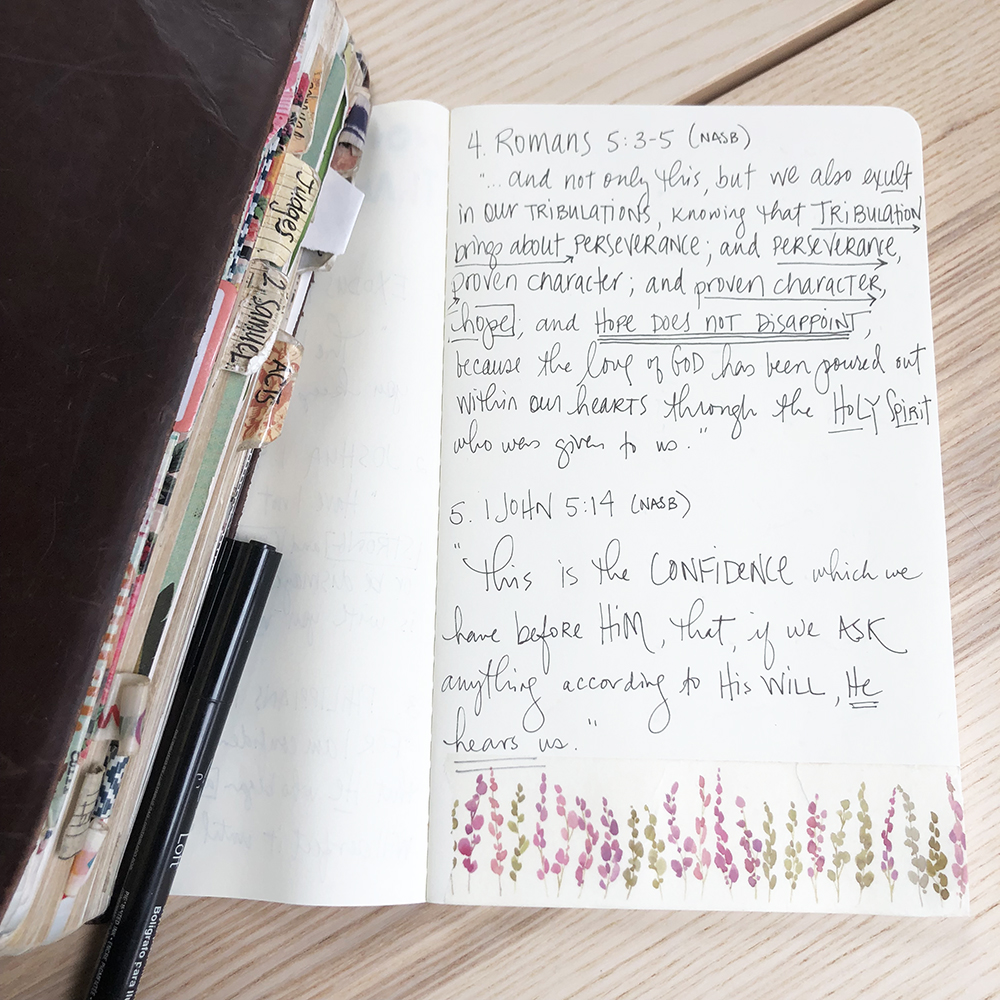 4. Romans 5:3-5 (NASB)
"...and not only this, but we also exult
in OUR TRIBULATIONS, knowing that TRIBULATION
brings about PERSEVERANCE; and PERSEVERANCE,
proven character; and proven character,
hope; and HOPE DOES NOT DISAPPOINT,
because the love of GOD has been poured out
within our HEARTS through the HOLY SPIRIT
who was given to us."
5. 1 JOHN 5:14 (NASB)
"This is the CONFIDENCE which we
have before HIM, that, if we ASK
anything according to His WILL, He
hears us."
Judges
2 SAMUEL
ACTS
Loft
Bolígrafo para